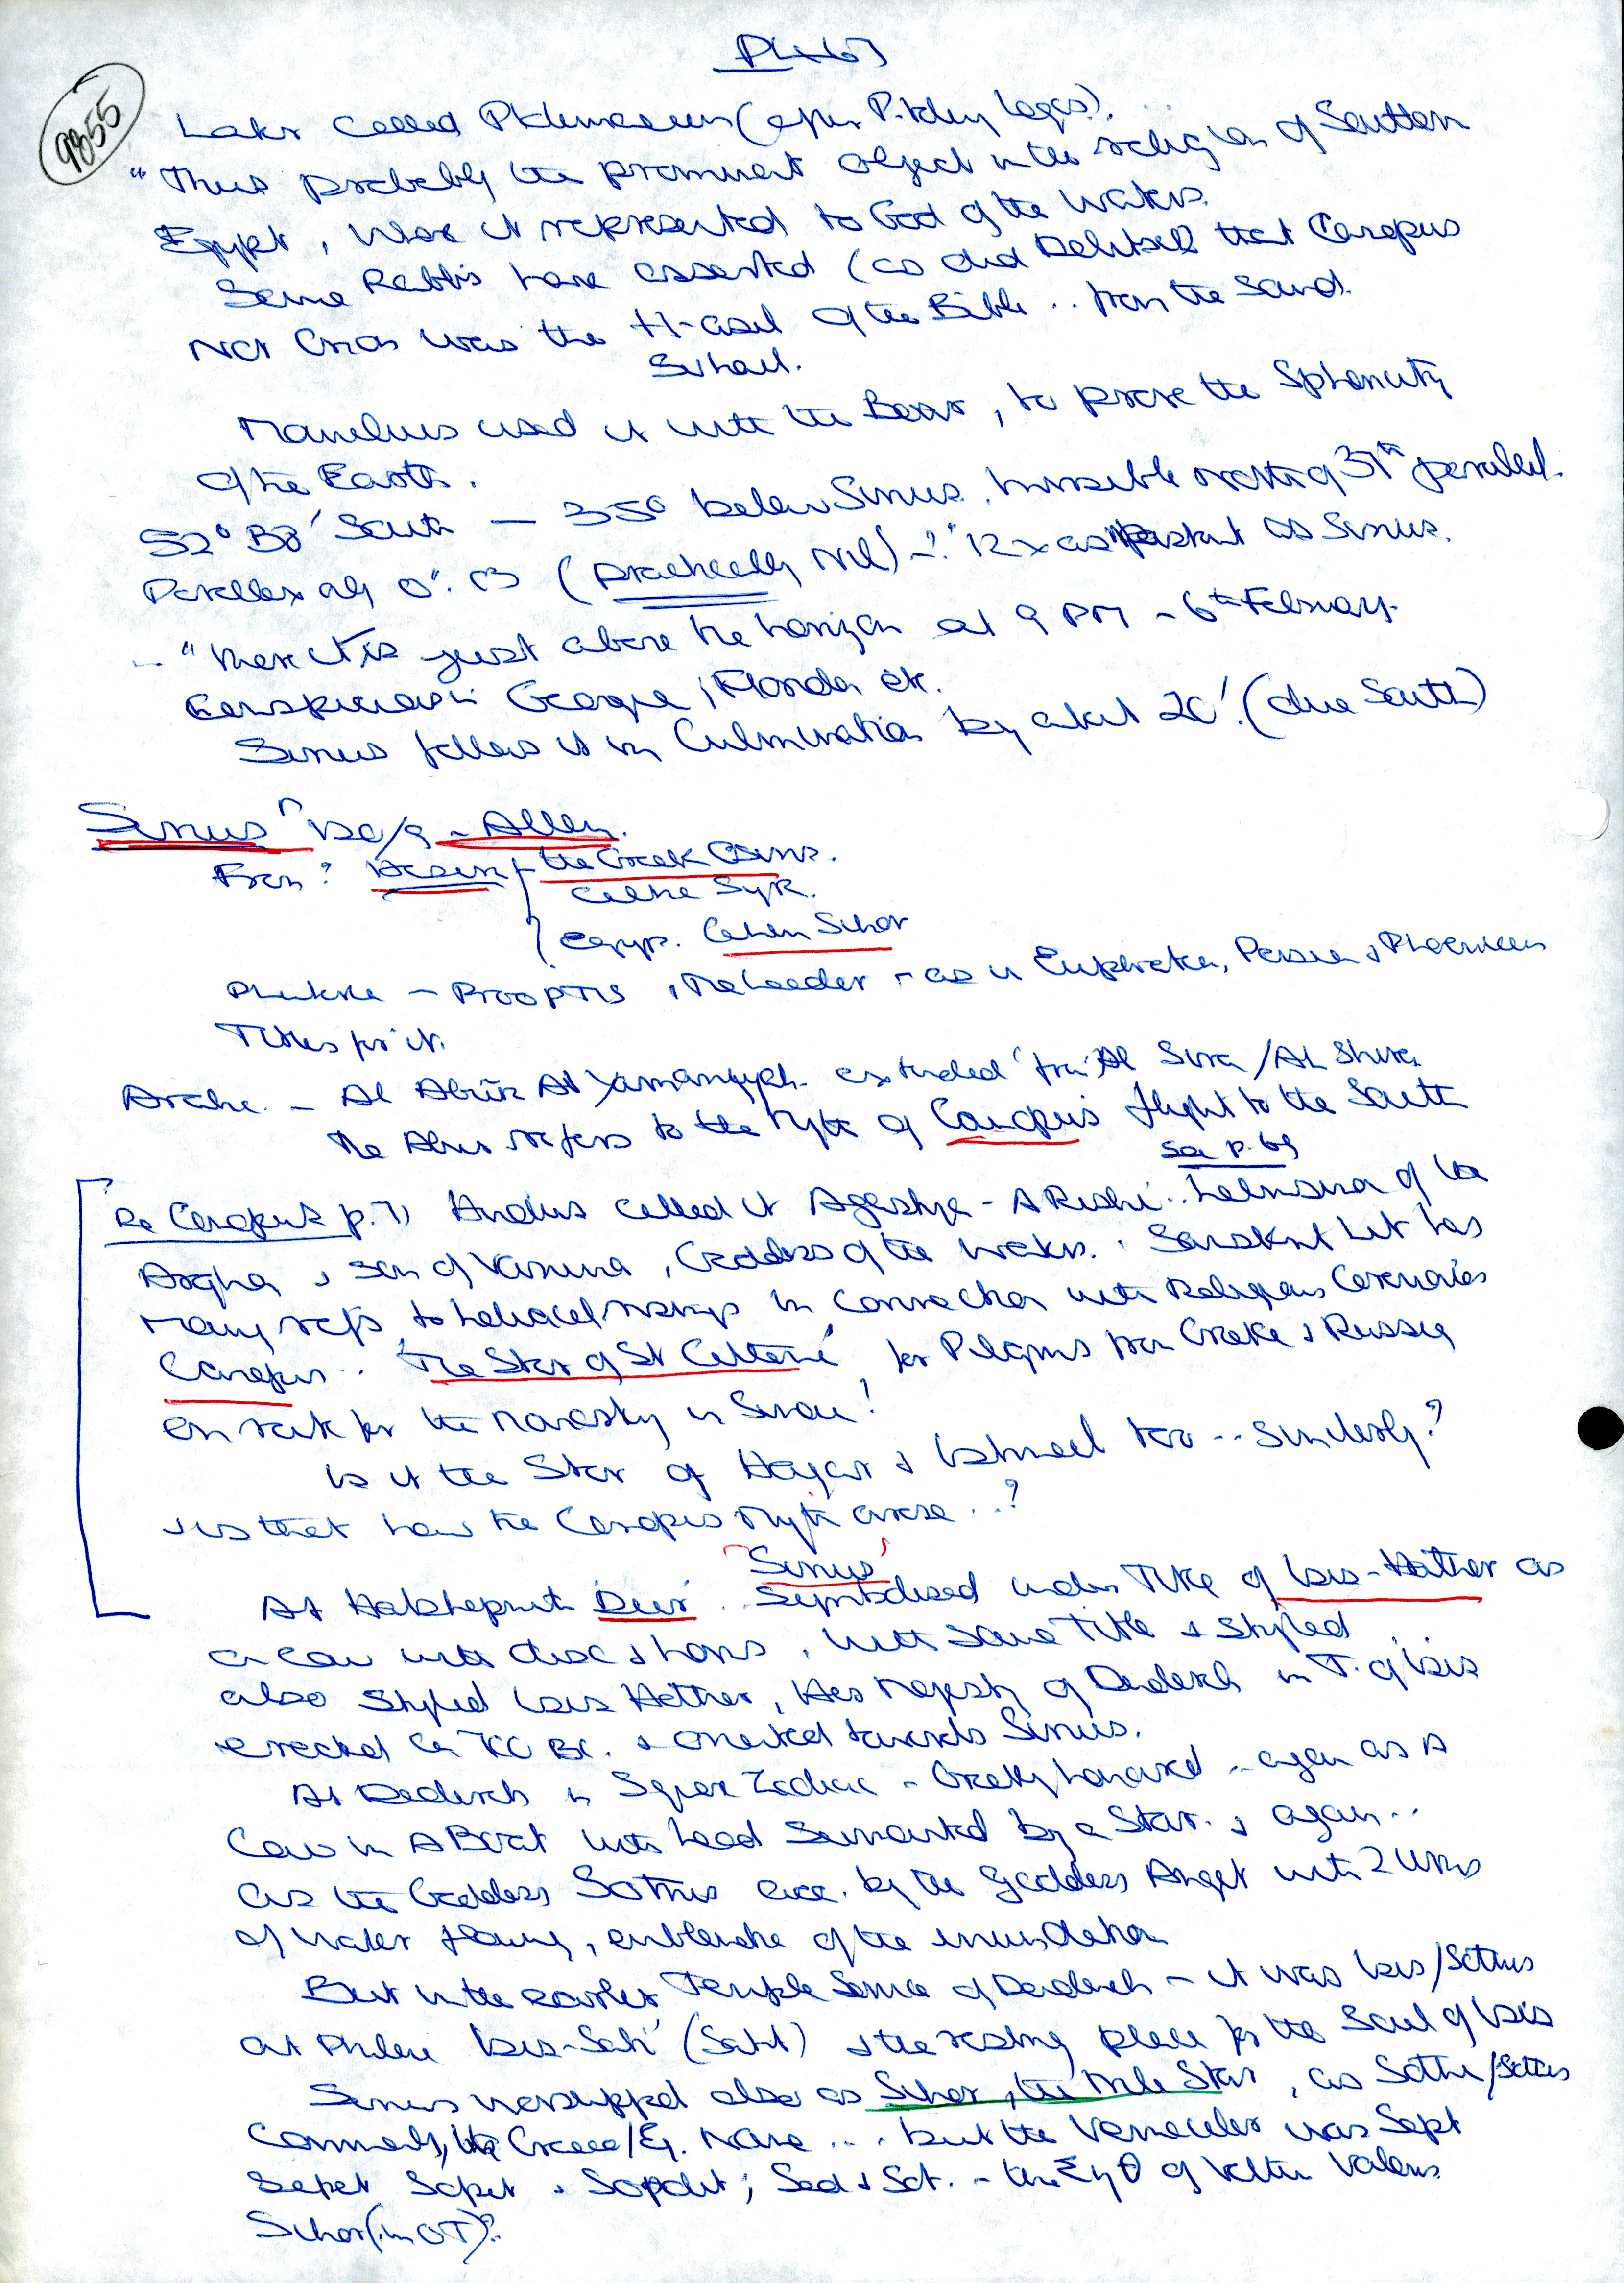 9855
Later called Ptolemaeon (after Ptolemy Lagos).
"Thus probably the prominent object in the religion of Southern
Egypt, where it represented to God of the Waters.
Some Rabbis have asserted (as did Delitsch that Canopus
Not Orion was the H-asil of the Bible .. from the Sand.
Suhail.
Manilius used it with the Bear, to prove the Sphericity
of the Earth.
52° 38' South — 35° below Sirius. Invisible north of 37th parallel.
Parallax only 0".03 (practically Nil) - ∴ 12 x as distant as Sirius.
"there it is just above the horizon at 9 PM - 6th February.
Conspicuous in Georgia, Florida etc.
Sirius follows it in Culmination by about 20'. (due South)
Sirius 120/9 - Allen.
From? the Greek Osiris.
Celtic Syr.
Egyp. Cahen Sihor
Plutarch - Prooptis, The Leader - as in Euphratean, Persian & Phoenician
Titles for it.
Arabic - Al Abūr Al Yamaniyyah extended from Al Sira / Al Shira
The Abur refers to the Myth of Canopus flight to the South
see p. 69
Re Canopus p. 71 Hindus called it Agastya - A Rishi .. helmsman of the
Argha & son of Varuna, Goddess of the Waters. Sanskrit Lit has
many refs to heliacal risings in connection with Religious Ceremonies
Canopus .. 'The Star of St Catherine' for Pilgrims from Greece & Russia
en route for the Monastery in Sinai!
Is it the Star of Hagar & Ishmael too .. similarly?
& is that how the Canopus Myth arose ..?
'Sirius'
At Hatshepsut Deir .. Symbolised under Title of Isis-Hathor as
a Cow with disc & horns, with same Title & styled
also styled Isis Hathor, Her Majesty of Denderah in T. of Isis
erected in 700 BC. & oriented towards Sirius.
At Denderah in Square Zodiac - Greatly honoured .. again as A
Cow in A Boat with head surmounted by a Star. & again ..
as the Goddess Sothis acc. by the goddess Anget with 2 Urns
of Water flowing, emblematic of the inundation
But in the earlier Temple Service of Denderah - it was Isis/Sothis
at Philae Isis-Sati (Satit) & the resting place for the Soul of Isis
Sirius worshipped also as Sihor, the Nile Star, as Sothi/Sothis
Commonly, its Graeco/Eg. Name ... but the Vernacular was Sept
Sepet Sopet & Sopdit; Sed & Sot. - the Σηθ of Vettius Valens
Sihor (in OT)?